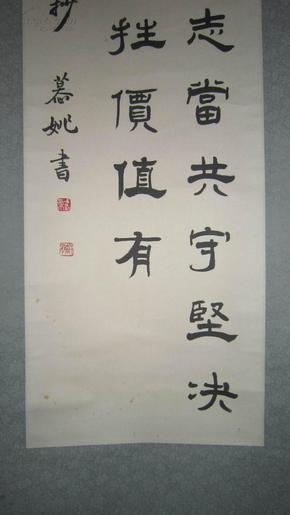 志當共守堅决
牲價值有
抄
慕姚書